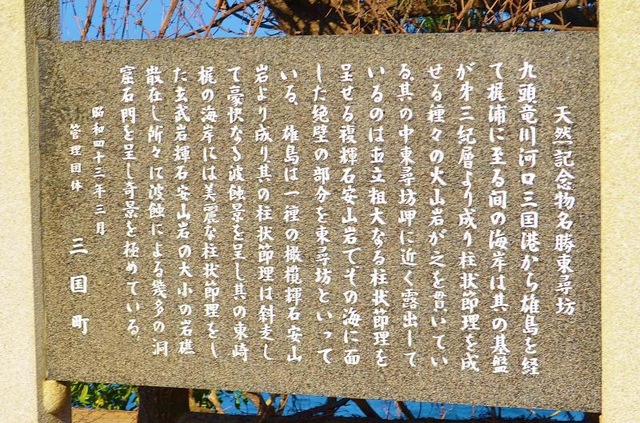 天然記念物名勝東尋坊
九頭竜川河口三国港から雄島を経
て梶浦に至る間の海岸は其の基盤
が第三紀層より成り柱状節理を成
せる種々の火山岩が之を貫いてい
る。其の中東尋坊岬に近く露出して
いるのは五立粗大なる柱状節理を
呈せる複輝石安山岩でその海に面
した絶壁の部分を東尋坊といって
いる。雄島は一種の橄欖輝石安山
岩より成り其の柱状節理は斜走し
て豪快なる波蝕景を呈し其の東崎
梶の海岸には美麗な柱状節理をし
た玄武岩輝石安山岩の大小の岩礁
散在し所々に波蝕による幾多の洞
窟石門を呈し奇景を極めている。
昭和四十三年三月
管理団体 三国町